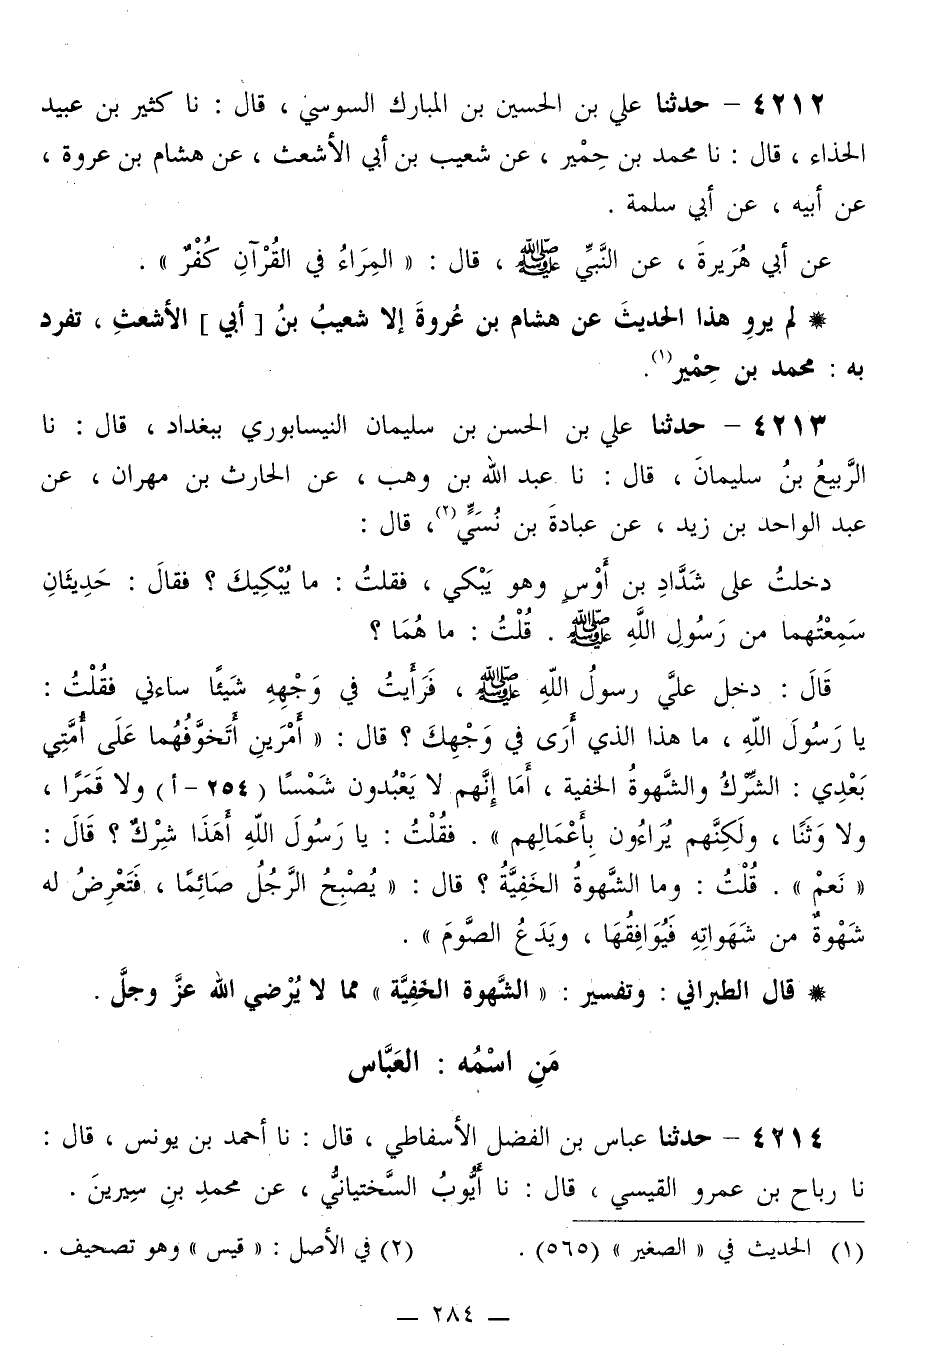 ٤٢١٢ - حدثنا علي بن الحسين بن المبارك السوسي ، قال : نا كثير بن عبيد
الحذاء ، قال : نا محمد بن حِمْير ، عن شعيب بن أبي الأشعث ، عن هشام بن عروة ،
عن أبيه ، عن أبي سلمة .
عن أبي هُرَيرةَ ، عن النَّبيِّ ﷺ ، قال : « المِرَاءُ في القُرْآنِ كُفْرٌ » .
* لم يروِ هذا الحديثَ عن هشام بن عُروةَ إلا شعيبُ بنُ [ أبي ] الأشعثِ ، تفرد
به : محمد بن حِمْير(١).
٤٢١٣ - حدثنا علي بن الحسن بن سليمان النيسابوري ببغداد ، قال : نا
الرَّبيعُ بنُ سليمانَ ، قال : نا عبد الله بن وهب ، عن الحارث بن مهران ، عن
عبد الواحد بن زيد ، عن عبادةَ بن نُسَيٍّ(٢)، قال :
دخلتُ على شَدَّادِ بن أَوْسٍ وهو يَبْكي ، فقلتُ : ما يُبْكِيكَ ؟ فقالَ : حَدِيثَانِ
سَمِعْتُهما من رَسُولِ اللَّهِ ﷺ . قُلْتُ : ما هُمَا ؟
قَالَ : دخل عليَّ رسولُ اللّهِ ﷺ ، فَرَأَيتُ في وَجْهِهِ شَيئًا ساءني فقُلْتُ :
يا رَسُولَ اللّهِ ، ما هذا الذي أَرَى في وَجْهِكَ ؟ قال : « أَمْرَينِ أَتَخوَّفُهُما عَلَى أُمَّتِي
بَعْدِي : الشِّرْكُ والشَّهوةُ الخفية ، أَمَا إِنَّهم لا يَعْبُدون شَمْسًا ( ٢٥٤ - أ ) ولا قَمَرًا ،
ولا وَثَنًا ، ولَكِنَّهم يُرَاءُون بِأَعْمَالِهم » . فقُلْتُ : يا رَسُولَ اللّهِ أَهَذَا شِرْكٌ ؟ قَالَ :
« نَعمْ » . قُلْتُ : وما الشَّهوةُ الخَفِيَّةُ ؟ قال : « يُصْبِحُ الرَّجُلُ صَائِمًا ، فَتَعْرِضُ له
شَهْوةٌ من شَهَواتِهِ فَيُوَافِقُهَا ، ويَدَعُ الصَّومَ » .
* قال الطبراني : وتفسير : « الشَّهوة الخَفِيَّة » مما لا يُرْضي الله عزَّ وجلَّ .
مَنِ اسْمُه : العَبَّاس
٤٢١٤ - حدثنا عباس بن الفضل الأسفاطي ، قال : نا أحمد بن يونس ، قال :
نا رباح بن عمرو القيسي ، قال : نا أَيُّوبُ السَّختيانيُّ ، عن محمدِ بنِ سِيرينَ .
(١) الحديث في « الصغير » (٥٦٥) . (٢) في الأصل : « قيس » وهو تصحيف .
— ٢٨٤ —